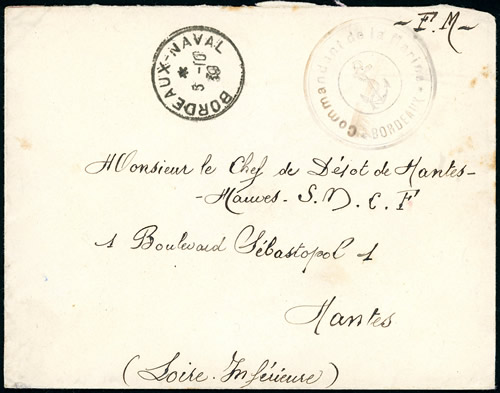 - F.M -
BORDEAUX-NAVAL
*
5 -10
39
Commandant de la Marine
* BORDEAUX *
Monsieur le Chef de Dépot de Nantes-
- Mauves - S. N. C. F
1 Boulevard Sébastopol 1
Nantes
(Loire-Inférieure)